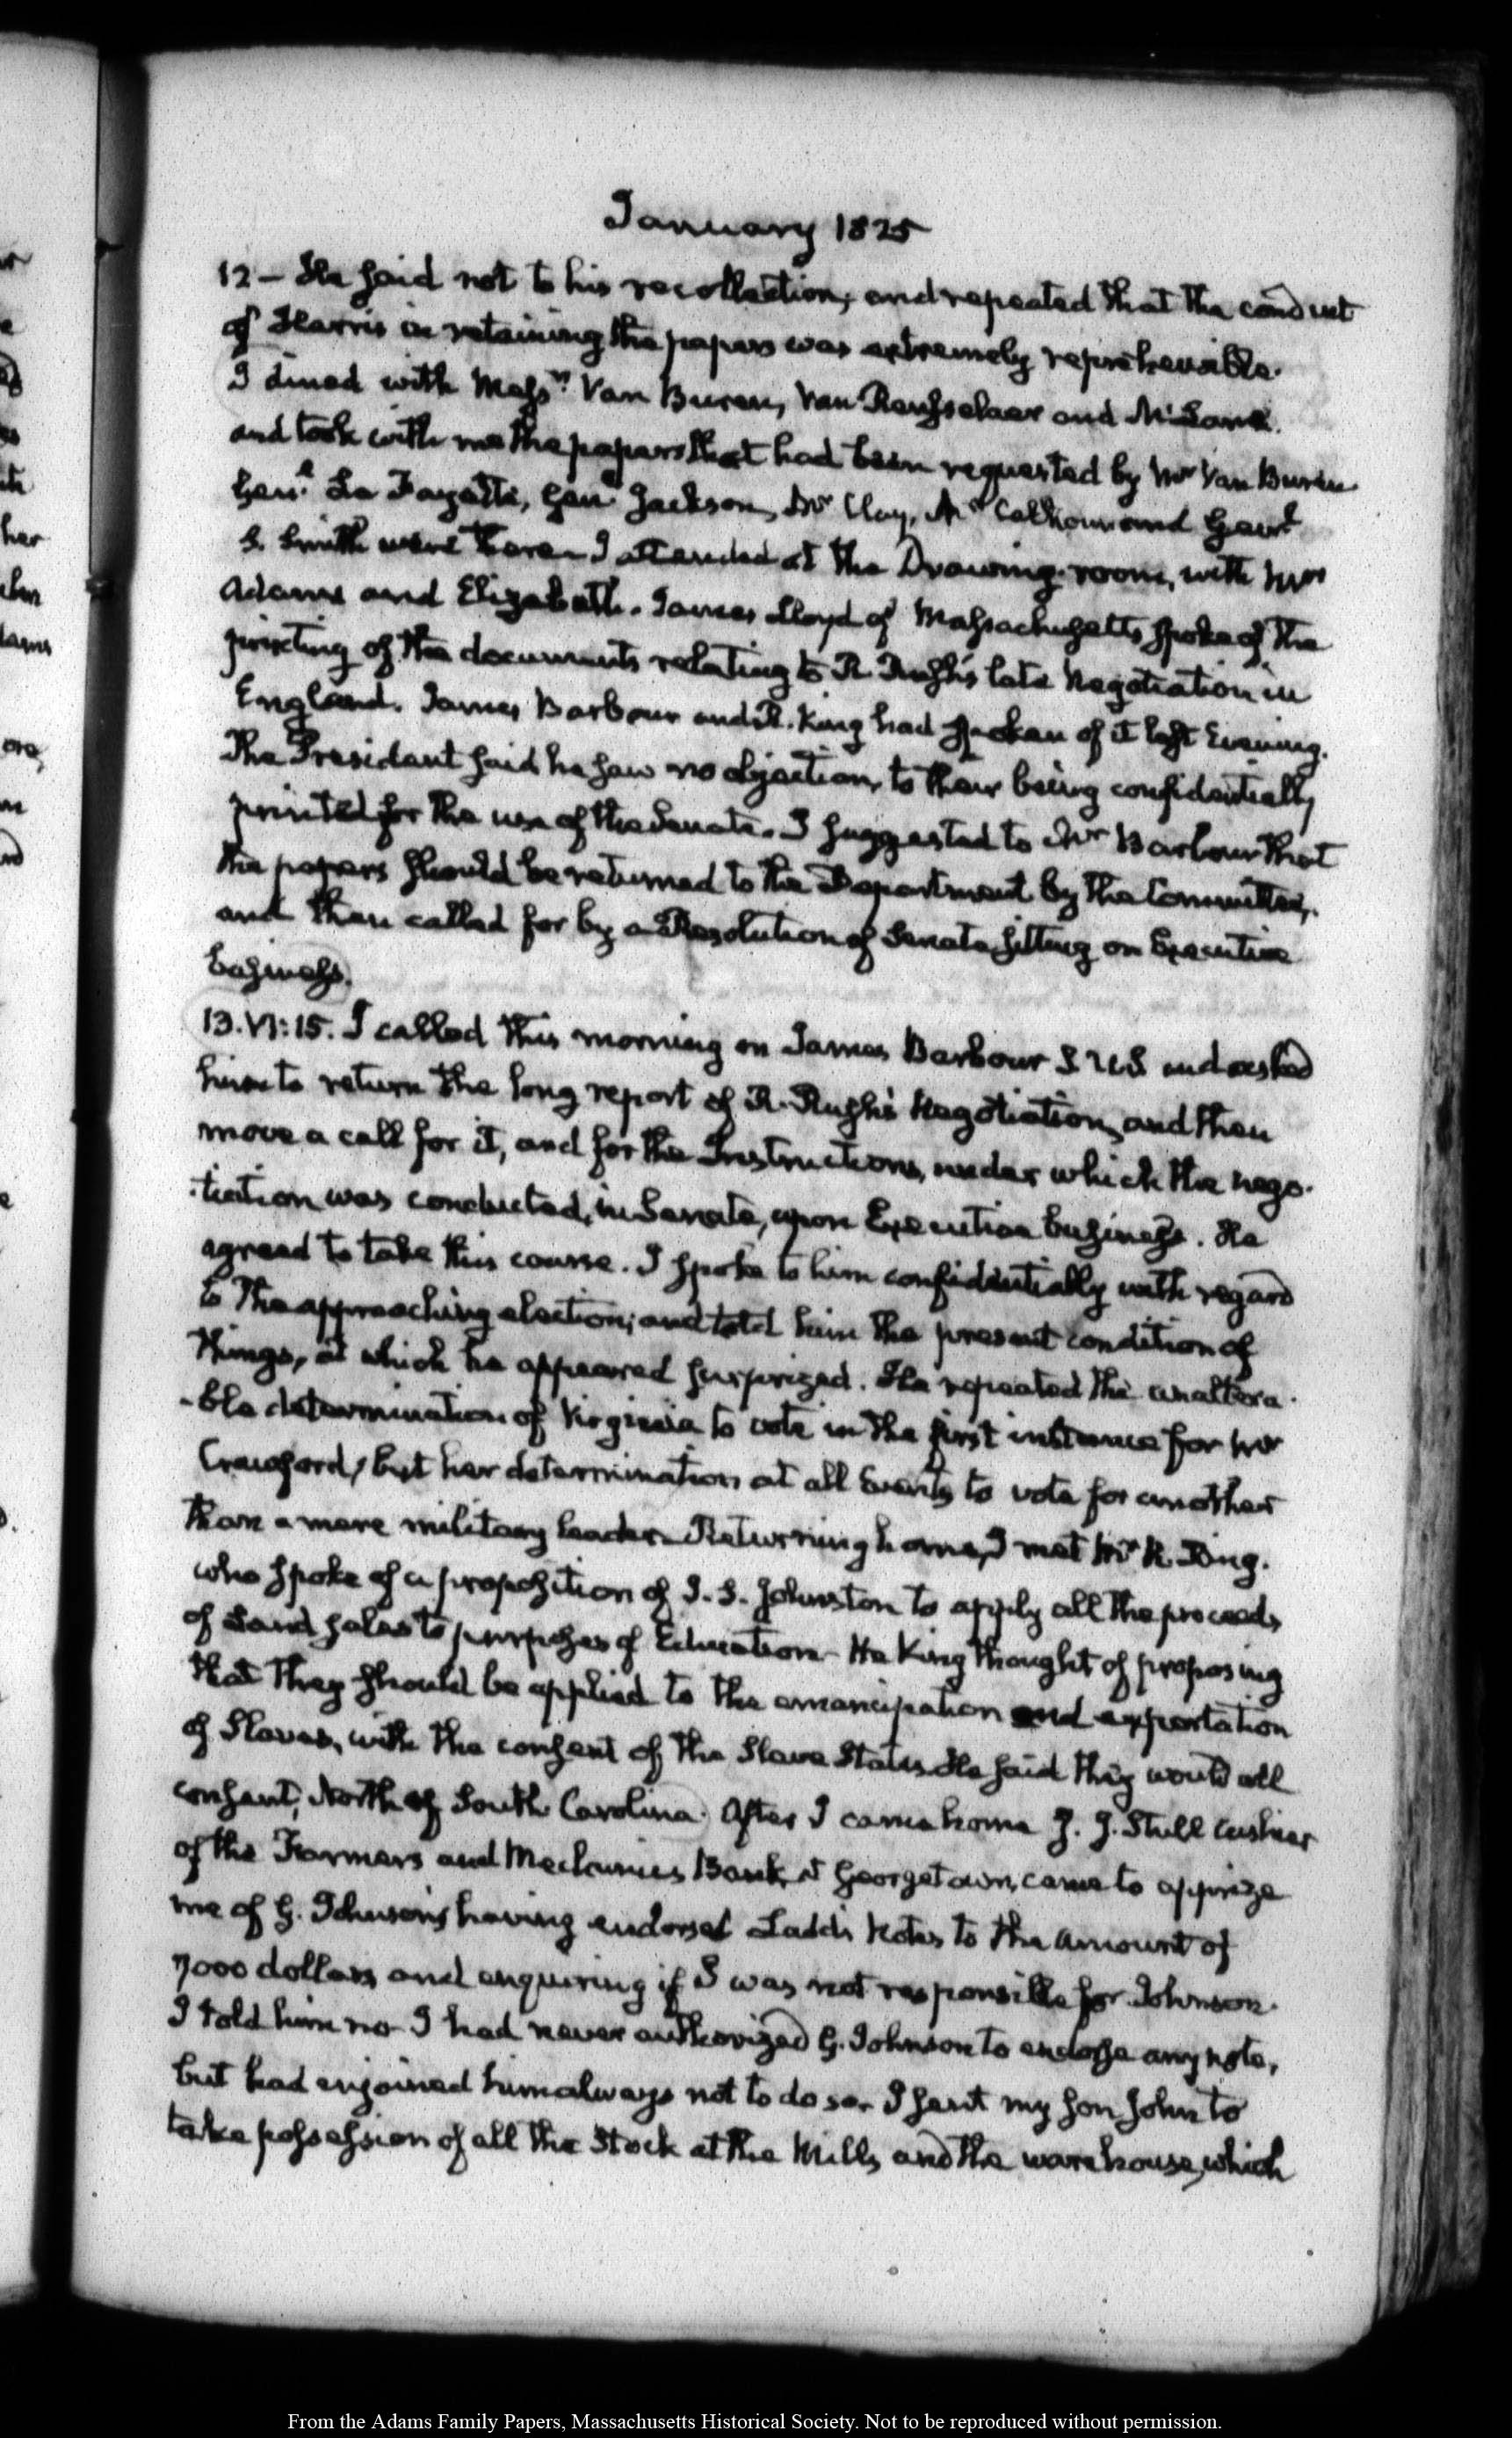 January 1825
12 – He said not to his recollection, and repeated that the conduct
of Harris in retaining the papers was extremely reprehensible.
I dined with Mess.rs Van Buren, Van Rensselaer and McLane.
and took with me the papers that had been requested by Mr Van Buren
Genl. La Fayette, Genl Jackson, Mr Clay, Mr Calhoun and Genl
S. Smith were there – I attended at the Drawing-room, with Mrs
Adams and Elizabeth. James Lloyd of Massachusetts spoke of the
printing of the documents relating to R Rush's late Negotiation in
England. James Barbour and R. King had spoken of it last Evening.
The President said he saw no objection, to their being confidentially
printed for the use of the Senate. I suggested to Mr Barbour that
the papers should be returned to the Department by the Committee,
and then called for by a Resolution of Senate sitting on Executive
business.
13. VI:15. I called this morning on James Barbour S US and asked
him to return the long report of R. Rush's Negotiation, and then
move a call for it, and for the Instructions, under which the nego-
-tiation was conducted, in Senate, upon Executive business. He
agreed to take this course. I spoke to him confidentially with regard
to the approaching election; and told him the present condition of
things, at which he appeared surprized. He repeated the unaltera-
-ble determination of Virginia to vote in the first instance for Mr
Crawford, but her determination at all Events to vote for another
than a mere military leader – Returning home, I met Mr R. King.
who spoke of a proposition of J. S. Johnston to apply all the proceeds
of Land sales to purposes of Education – He King thought of proposing
that they should be applied to the emancipation and exportation
of Slaves, with the consent of the Slave States. He said they would all
consent, North of South Carolina. After I came home J. J. Stull Cashier
of the Farmers and Mechanics Bank at Georgetown, came to apprize
me of G. Johnson's having endorsed Ladd's Notes to the amount of
7000 dollars and enquiring if I was not responsible for Johnson.
I told him no – I had never authorized G. Johnson to endorse any note,
but had enjoined him always not to do so. I sent my son John to
take possession of all the Stock at the Mills, and the warehouse, which
From the Adams Family Papers, Massachusetts Historical Society. Not to be reproduced without permission.